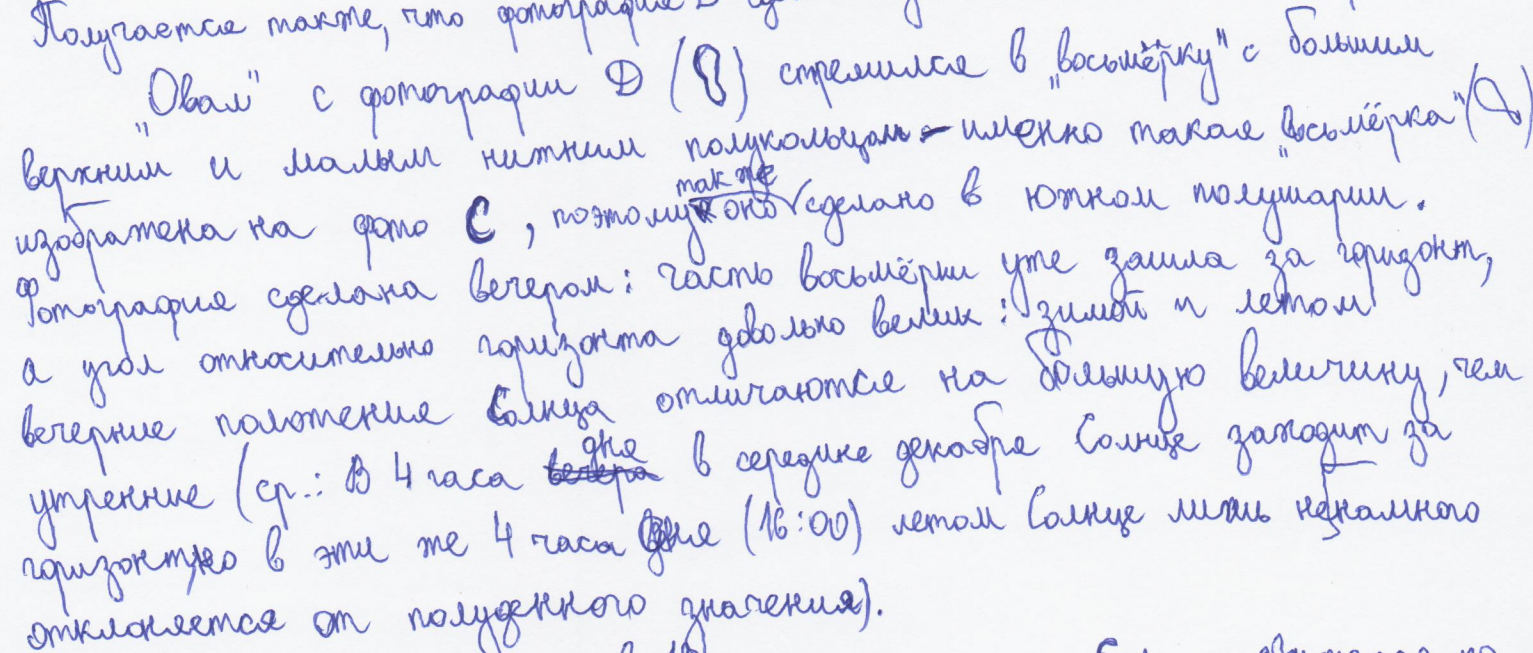 Получается также, что фотография D
„Овал" с фотографии D ( ) стремился в „восьмёрку" с большим
верхним и малым нижним полукольцом – именно такая „восьмёрка" ( )
изображена на фото C, поэтому оно также сделано в южном полушарии.
Фотография сделана вечером: часть восьмёрки уже зашла за горизонт,
а угол относительно горизонта довольно велик: зимой и летом
вечерние положения Солнца отличаются на большую величину, чем
утренние (ср.: В 4 часа дня в середине декабря Солнце заходит за
горизонт, но в эти же 4 часа дня (16:00) летом Солнце лишь ненамного
отклоняется от полуденного значения).